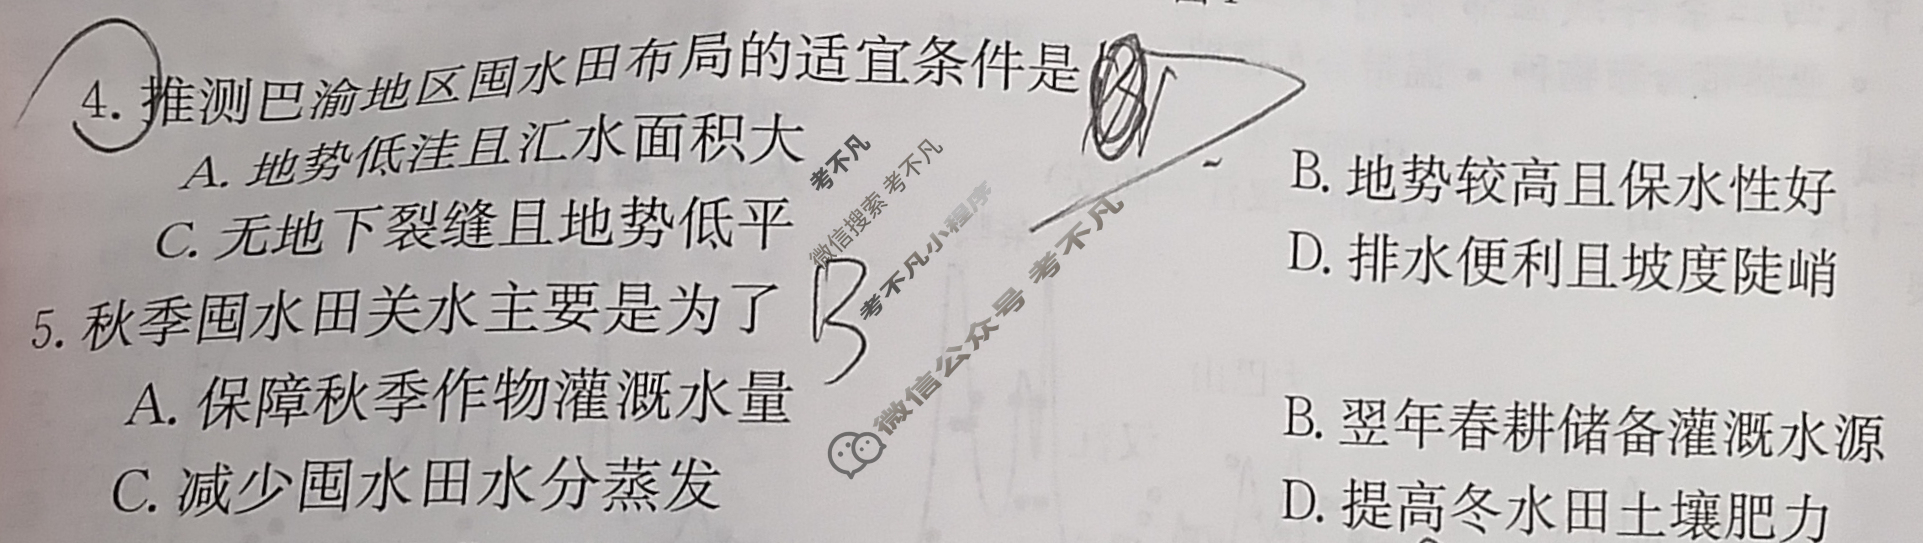 4. 推测巴渝地区囤水田布局的适宜条件是
A. 地势低洼且汇水面积大
B. 地势较高且保水性好
C. 无地下裂缝且地势低平
D. 排水便利且坡度陡峭
5. 秋季囤水田关水主要是为了 B
A. 保障秋季作物灌溉水量
B. 翌年春耕储备灌溉水源
C. 减少囤水田水分蒸发
D. 提高冬水田土壤肥力
考不凡
微信搜索 考不凡
考不凡小程序
微信公众号 考不凡